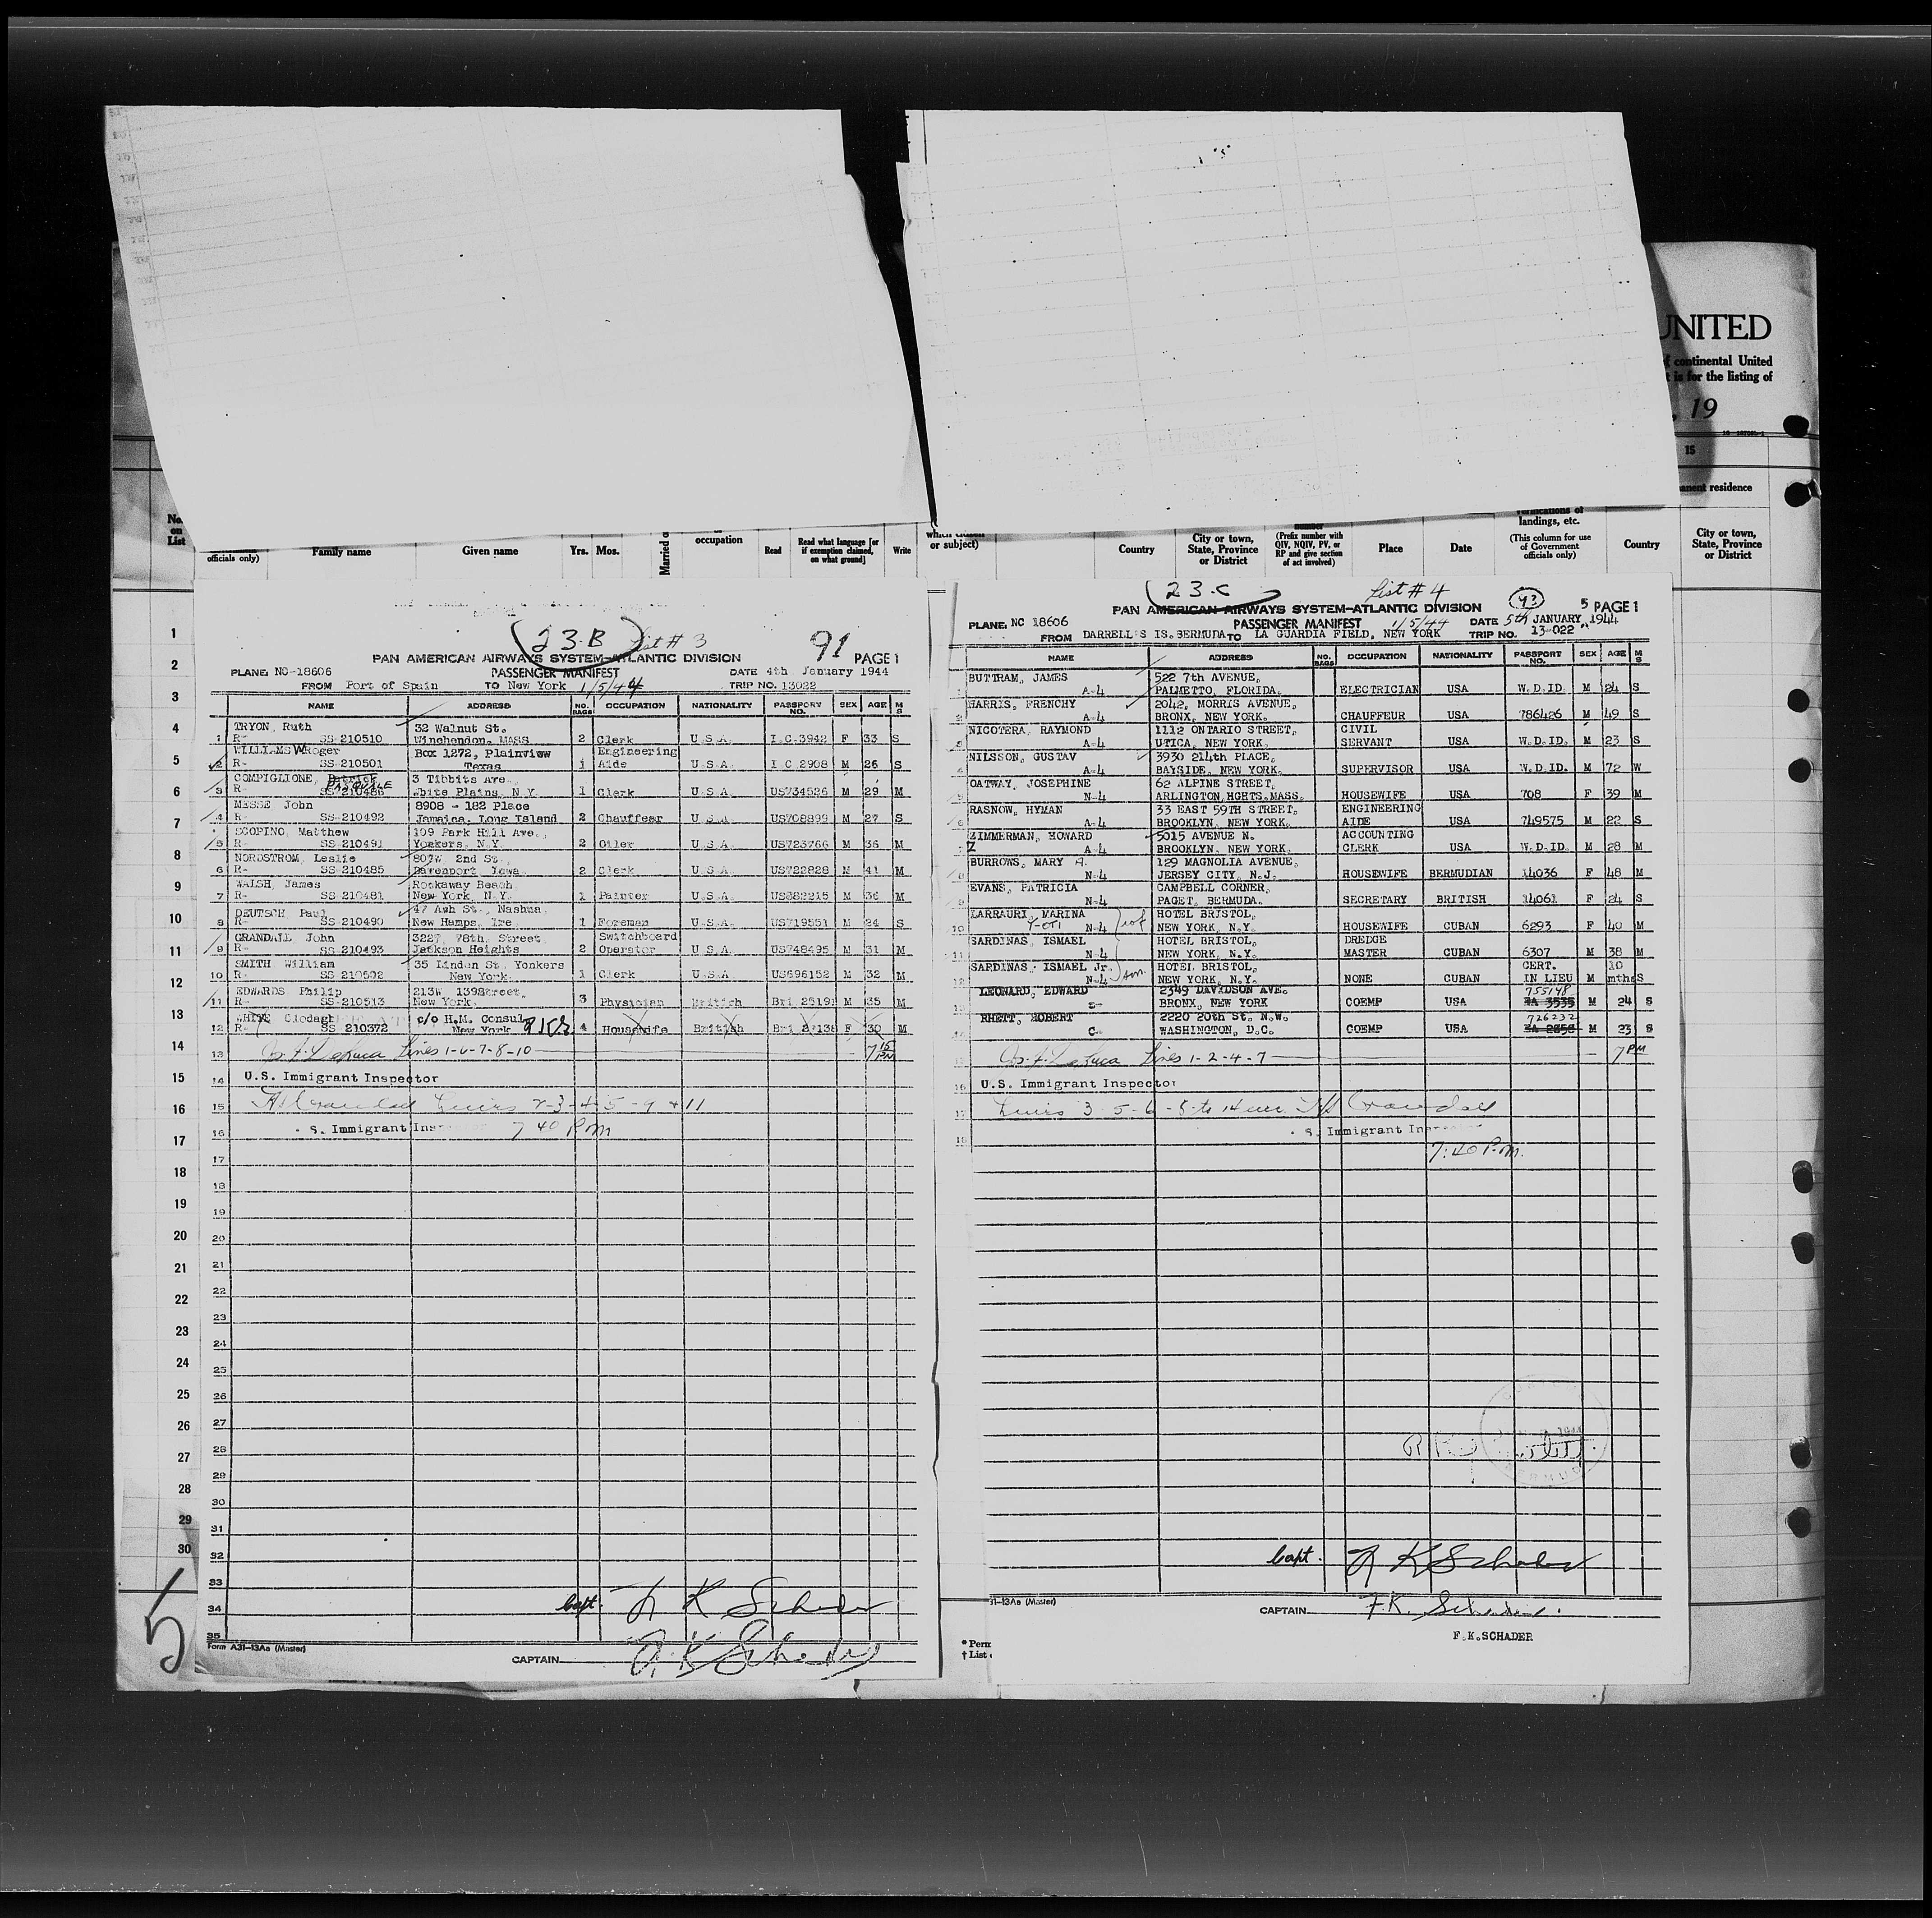 UNITED
continental United
is for the listing of
, 19
15
residence
No.
on
List
officials only)
Family name
Given name
Yrs. Mos.
Married
occupation
Read
Read what language [or
if exemption claimed,
on what ground]
Write
or subject)
Country
City or town,
State, Province
or District
number
(Prefix number with
QIV, NQIV, PV, or
RP and give section
of act involved)
Place
Date
verifications of
landings, etc.
(This column for use
of Government
officials only)
Country
City or town,
State, Province
or District
1
2
3
4
5
6
7
8
9
10
11
12
13
14
15
16
17
18
19
20
21
22
23
24
25
26
27
28
29
30
5
23-B List # 3 91
PAN AMERICAN AIRWAYS SYSTEM-ATLANTIC DIVISION PAGE 1
PLANE: NC-18606 PASSENGER MANIFEST DATE 4th January 1944
FROM Port of Spain TO New York 1/5/44 TRIP NO. 13022
NAME ADDRESS NO. BAGS OCCUPATION NATIONALITY PASSPORT NO. SEX AGE M S
TRYON, Ruth 32 Walnut St.
1 R- SS-210510 Winchendon, MASS 2 Clerk U.S.A. I.C.3942 F 33 S
WILLIAMS W Roger Box 1272, Plainview Engineering
2 R- SS-210501 Texas 1 Aide U.S.A. I C 2908 M 26 S
COMPIGLIONE, Patrick PASQUALE 3 Tibbits Ave.,
3 R- SS-210486 White Plains, N.Y. 1 Clerk U.S.A. US734526 M 29 M
MESSE John 8908 - 182 Place
4 R- SS-210492 Jamaica, Long Island 2 Chauffear U.S.A. US708899 M 27 S
SCOPINO, Matthew 109 Park Hill Ave.,
5 R- SS-210491 Yonkers, N.Y. 2 Oiler U.S.A. US723766 M 36 M
NORDSTROM, Leslie 807W 2nd St.
6 R- SS-210485 Davenport, Iowa 2 Clerk U.S.A. US722828 M 41 M
WALSH, James Rockaway Beach
7 R- SS-210481 New York, N.Y. 1 Painter U.S.A. US682215 M 36 M
DEUTSCH, Paul 47 Ash St., Nashua
8 R- SS-210490 New Hamps, ire 1 Foreman U.S.A. US719551 M 24 S
CRANDALL John 3227, 78th, Street Switchboard
9 R- SS-210493 Jackson Heights 2 Operator U.S.A. US748495 M 31 M
SMITH William 35 Linden St, Yonkers
10 R- SS 210502 New York. 1 Clerk U.S.A US696152 M 32 M
EDWARDS Philip 213W 139Street,
11 R- SS-210513 New York. 3 Physician British Bri 2519 M 35 M
WHITE Clodagh c/o H.M. Consul
12 R- SS 210372 New York 4 Housewife British F 30 M
13 Lines 1-6-7-8-10 7 15 PM
14 U.S. Immigrant Inspector
15 Crandall Lines 2-3-4-5-9 + 11
16 S. Immigrant Ins 7 40 P.M
17
18
19
20
21
22
23
24
25
26
27
28
29
30
31
32
33
34
35
Capt. F K Schader
Form A31-13Aa (Master)
CAPTAIN F. K. Schader
23-C List # 4
PAN AMERICAN AIRWAYS SYSTEM-ATLANTIC DIVISION 93 5 PAGE 1
PLANE: NC 18606 PASSENGER MANIFEST 1/5/44 DATE 5th JANUARY, 1944
FROM DARRELL'S IS. BERMUDA TO LA GUARDIA FIELD, NEW YORK TRIP NO. 13-022
NAME ADDRESS NO. BAGS OCCUPATION NATIONALITY PASSPORT NO. SEX AGE M S
BUTTRAM, JAMES 522 7th AVENUE,
A-4 PALMETTO, FLORIDA. ELECTRICIAN USA W.D.ID. M 24 S
HARRIS, FRENCHY 2042, MORRIS AVENUE,
2 A-4 BRONX, NEW YORK. CHAUFFEUR USA 786426 M 49 S
NICOTERA, RAYMOND 1112 ONTARIO STREET, CIVIL
A-4 UTICA, NEW YORK. SERVANT USA W.D.ID. M 23 S
NILSSON, GUSTAV 3930 214th PLACE,
A-4 BAYSIDE, NEW YORK. SUPERVISOR USA W.D.ID. M 72 W
OATWAY, JOSEPHINE 62 ALPINE STREET,
N-4 ARLINGTON,HGHTS.MASS. HOUSEWIFE USA 708 F 39 M
RASNOW, HYMAN 33 EAST 59TH STREET, ENGINEERING
A-4 BROOKLYN, NEW YORK. AIDE USA 749575 M 22 S
ZIMMERMAN, HOWARD 5015 AVENUE N. ACCOUNTING
A-4 BROOKLYN, NEW YORK. CLERK USA W.D.ID. M 28 M
BURROWS, MARY A. 129 MAGNOLIA AVENUE,
N-4 JERSEY CITY, N.J. HOUSEWIFE BERMUDIAN 14036 F 48 M
EVANS, PATRICIA CAMPBELL CORNER,
N-4 PAGET, BERMUDA. SECRETARY BRITISH 14061 F 24 S
LARRAURI, MARINA HOTEL BRISTOL,
10 N-4 NEW YORK, N.Y. HOUSEWIFE CUBAN 6293 F 40 M
SARDINAS, ISMAEL HOTEL BRISTOL, DREDGE
11 N-4 NEW YORK, N.Y. MASTER CUBAN 6307 M 38 M
SARDINAS, ISMAEL Jr. son HOTEL BRISTOL, CERT. 10
12 N-4 NEW YORK, N.Y. NONE CUBAN IN LIEU M mths S
LEONARD, EDWARD 2349 DAVIDSON AVE. 755148
13 C- BRONX, NEW YORK COEMP USA TA 3535 M 24 S
RHETT, ROBERT 2220 20th St. N.W. 726232
C- WASHINGTON, D.C. COEMP USA M 23 S
Lines 1-2-4-7 7 PM
16 U.S. Immigrant Inspector
17 Lines 3-5-6-8 to 14 Crandall
18 S. Immigrant In
7:40 P.M.
Capt. F K Schader
31-13Aa (Master)
CAPTAIN F. K. Schader
F.K.SCHADER
* Perm
† List